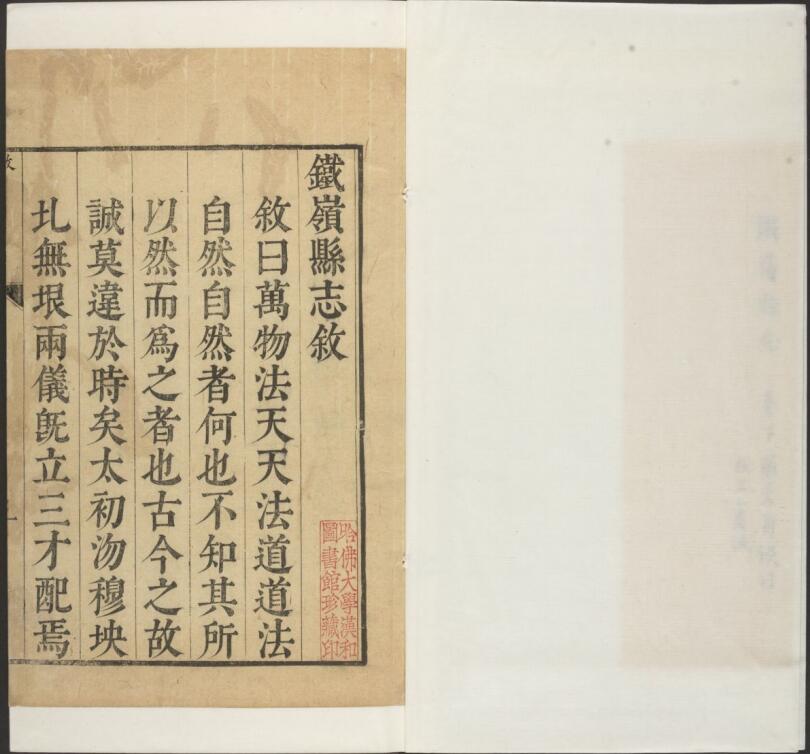 鐵嶺縣志敘
敘曰萬物法天天法道道法
自然自然者何也不知其所
以然而爲之者也古今之故
誠莫違於時矣太初沕穆坱
圠無垠兩儀旣立三才配焉
哈佛大學漢和
圖書館珍藏印